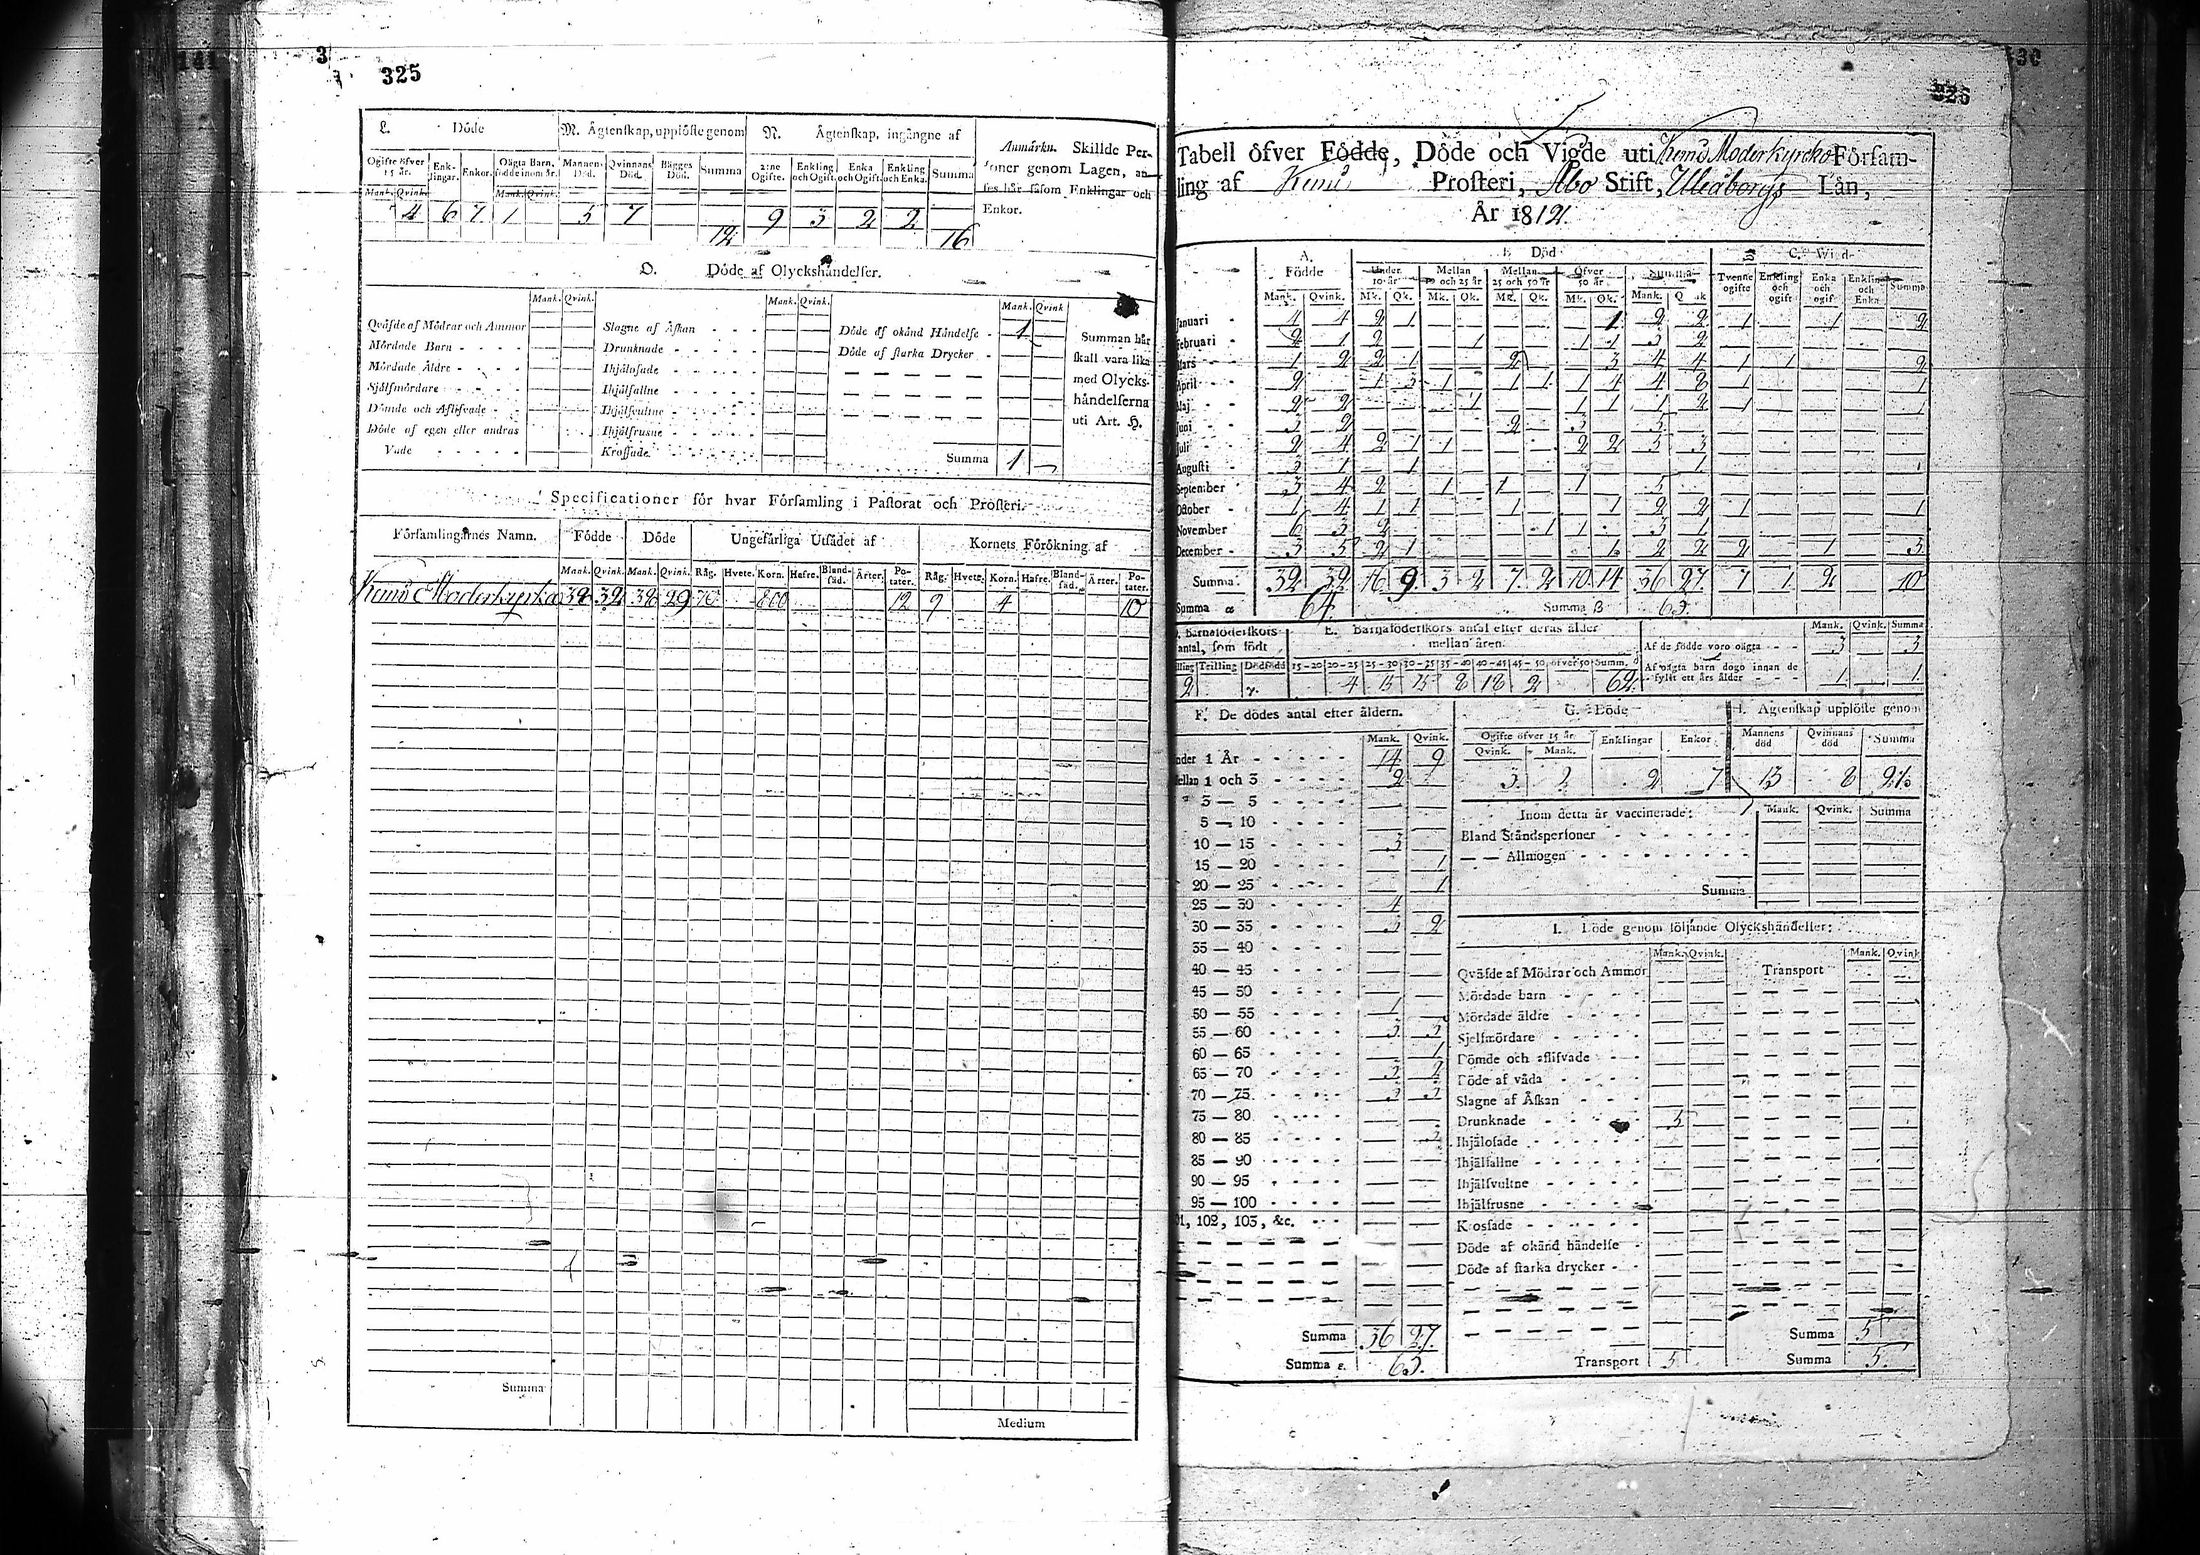 325
L. Döde
M. Ägtenskap, upplöste genom
N. Ägtenskap, ingångne af
Ogifte öfver 15 år. Enklingar. Enkor. Oägta Barn, födde inom år. Mannens Död. Qvinnans Död. Bägges Död. Summa 2:ne Ogifte. Enkling och Ogift. Enka och Ogift. Enkling och Enka. Summa
Mank. Qvink. Mank. Qvink.
4 6 7 1 5 7 12 9 3 2 2 16
Anmärkn. Skillde Personer genom Lagen, anses här såsom Enklingar och Enkor.
O. Döde af Olyckshändelser.
Mank. Qvink. Mank. Qvink. Mank. Qvink
Qväfde af Mödrar och Ammor
Mördade Barn
Mördade Äldre
Sjelfmördare
Dömde och Aflifvade
Döde af egen eller andras
Vade
Slagne af Åskan
Drunknade
Ihjälofade
Ihjälfallne
Ihjälfvultne
Ihjälfrusne
Krossade
Döde af okänd Händelse 1
Döde af starka Drycker
Summa 1
Summan här
skall vara lika
med Olycks-
händelserna
uti Art. H.
Specificationer för hvar Församling i Pastorat och Prosteri.
Församlingarnes Namn. Födde Döde Ungefärliga Utsädet af Kornets Förökning af
Mank. Qvink. Mank. Qvink. Råg. Hvete. Korn. Hafre. Blandsäd. Ärter. Potater. Råg. Hvete. Korn. Hafre. Blandsäd. Ärter. Potater.
Kemi Moderkyrka 38 32 38 29 70 800 12 9 4 10
Summa
Medium
326
Tabell öfver Födde, Döde och Vigde uti Kemi Moderkyrcko Försam-
ling af Kemi Prosteri, Åbo Stift, Uleåborgs Län,
År 1812.
A. Födde
B Död
C. Wigd
Under 10 år Mellan 10 och 25 år Mellan 25 och 50 år Öfver 50 år Summa Tvenne ogifte Enkling och ogift Enka och ogif. Enkling och Enka Summa
Mank. Qvink. Mk. Qk. Mk. Qk. Mk. Qk. Mk. Qk. Mank.
Januari 4 4 2 1 1 2 2 1 1 2
Februari 2 1 2 1 1 1 3 2
Mars 1 2 2 1 2 3 4 4 1 1 2
April 2 1 3 1 1 1 1 4 4 8 1 1
Maj 2 2 1 1 1 1 2 1 1
Juni 3 2 2 3 5
Juli 2 4 2 1 1 2 2 5 3
Augusti 3 1 1 1
September 3 4 2 1 1 1 5
October 1 4 1 1 1 1 2 2 1 1
November 6 3 2 1 1 3 1
December 3 5 2 1 1 2 2 2 1 3
Summa. 32 32 16 9 3 2 7 2 10 14 36 27 7 1 2 10
Summa α 64. Summa β 63.
Barnaföderskors antal, som födt
E. Barnaföderskors antal efter deras ålder mellan åren.
Trilling Dödfödd 15-20 20-25 25-30 30-35 35-40 40-45 45-50 öfver 50 Summ.
2 4 15 15 8 18 2 62.
Mank. Qvink. Summa
Af de födde voro oägta 3 3
Af oägta barn dogo innan de fyllt ett års ålder 1 1
F. De dödes antal efter åldern.
Mank. Qvink.
under 1 År 14 9
mellan 1 och 3 2
3 — 5
5 — 10
10 — 15 3
15 — 20 1
20 — 25 1
25 — 30 4
30 — 35 3 2
35 — 40
40 — 45
45 — 50
50 — 55 1
55 — 60 3 3
60 — 65 1
65 — 70 3 2
70 — 75 3 3
75 — 80
80 — 85
85 — 90
90 — 95
95 — 100
101, 102, 103, &c.
Summa 36 27.
Summa ε. 63.
G. Döde
Ogifte öfver 15 år Enklingar Enkor
Qvink. Mank.
3 2 2 7
H. Ägtenskap upplöste genom
Mannens död Qvinnans död Summa
13 8 21.
Inom detta år vaccinerade: Mank. Qvink. Summa
Bland Ståndspersoner
— — Allmogen
Summa
I. Döde genom följande Olyckshändelser:
Mank. Qvink. Transport Mank. Qvink
Qväfde af Mödrar och Ammor
Mördade barn
Mördade äldre
Sjelfmördare
Dömde och aflifvade
Döde af våda
Slagne af Åskan
Drunknade 5
Ihjälofade
Ihjälfallne
Ihjälfvultne
Ihjälfrusne
Krosfade
Döde af okänd händelse
Döde af starka drycker
Summa 5
Transport 5 Summa 5.